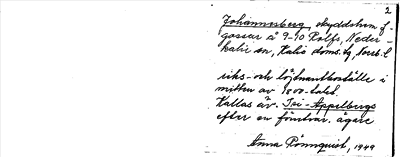 2
Johannesberg, skyddshem f.
gossar å 9-10 Rolfs, Neder-
kalix sn, Kalix doms. tg, Norrb. l.
riks- och löjtnantboställe i
mitten av 1800-talet.
Kallas äv. Tri-Appelbergs
efter en föregående ägare
Anna Rönnqvist, 1949